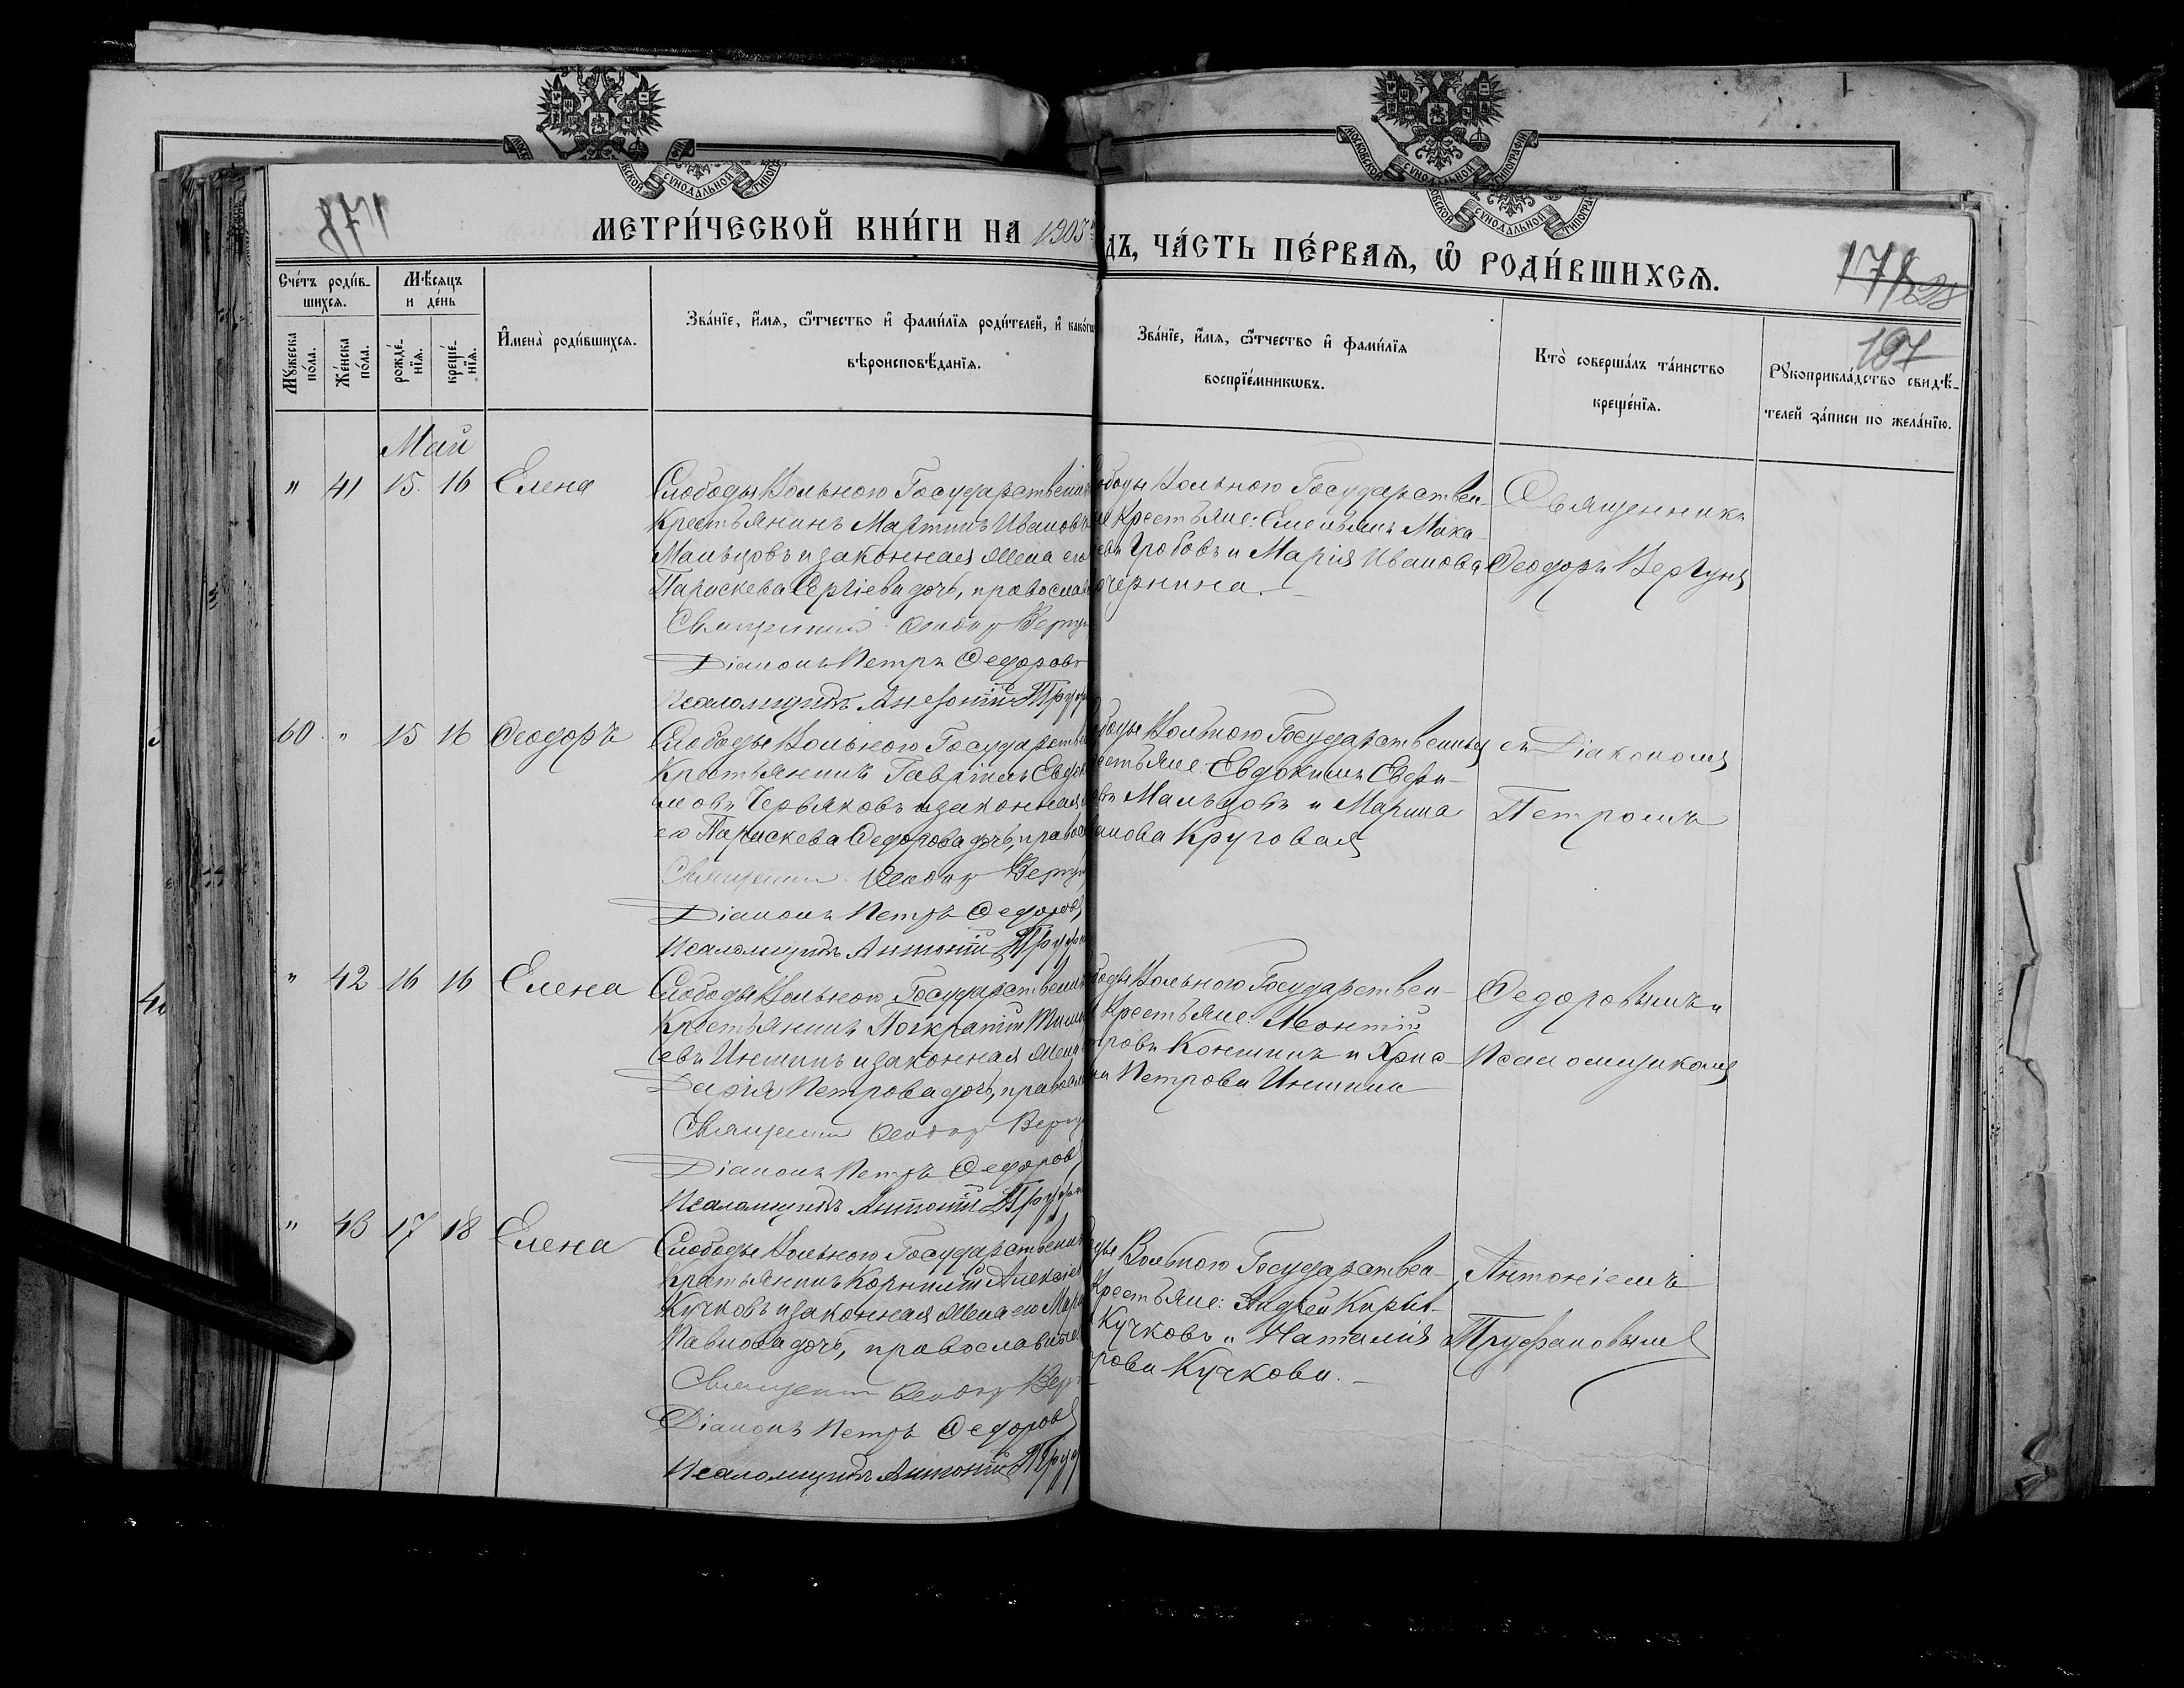 МЕТРИ́ЧЕСКОЙ КНИ́ГИ НА 1905
ДЪ, ЧА́СТЬ ПЕ́РВАѦ, Ѡ҆ РОДИ́ВШИХСѦ.
Сче́тъ роди́в-
шихсѧ.
Мѣ́сѧцъ
и де́нь
Мꙋ́жеска
по́ла.
Же́нска
по́ла.
рожде́-
нїѧ.
креще́-
нїѧ.
И҆мена̀ роди́вшихсѧ.
Зва́нїе, и҆́мѧ, ѻ҆́тчество и҆ фами́лїѧ роди́телей, и҆ како́гѡ
вѣроисповѣ́данїѧ.
Зва́нїе, и҆́мѧ, ѻ҆́тчество и҆ фами́лїѧ
воспрїе́мникѡвъ.
Кто̀ соверша́лъ та́инство
креще́нїѧ.
Рꙋкоприкла́дство свидѣ́-
телей за́писи по жела́нїю.
Май
" 41 15. 16 Елена
Слободы Вольного Государственн
Крестьянинъ Мартинъ Ивановъ
Мальцовъ и законная жена его
Параскева Сергіева дочь, православ
Священникъ Ѳеодоръ Вергун
Діаконъ Петръ Ѳедоровъ
Псаломщикъ Антоній Труф
ободы Вольного Государствен-
ые Крестьяне: Емельянъ Мака-
евъ Гробовъ и Марія Иванова
очернина.
Священникъ
Ѳеодоръ Вергунъ
60 " 15 16 Ѳеодоръ
Слободы Вольного Государствен
Крестьянинъ Гавріилъ Евдок
мовъ Червяковъ и законная
его Параскева Ѳедорова дочь, правос
Священникъ Ѳеодоръ Вергун
Діаконъ Петръ Ѳедоровъ
Псаломщикъ Антоній Труфа
ободы Вольного Государственныя
естьяне: Евдокимъ Евфи-
овъ Мальцовъ и Марина
анова Круговая
съ Діакономъ
Петромъ
" 42 16 16 Елена
Слободы Вольного Государственн
Крестьянинъ Панкратій Тимо
евъ Иншинъ и законная жена
Дарія Петрова дочь, правосл
Священникъ Ѳеодоръ Вергу
Діаконъ Петръ Ѳедоровъ
Псаломщикъ Антоній Труфа
боды Вольного Государствен-
Крестьяне: Леонтій
тровъ Коншинъ и Хрис-
на Петрова Иншина
Ѳедоровымъ и
Псаломщикомъ
" 43 17 18 Елена
Слободы Вольного Государственн
Крестьянинъ Корнилій Алексіев
Кучковъ и законная жена его Мар
Павлова дочь, православные
Священникъ Ѳеодоръ Верг
Діаконъ Петръ Ѳедоровъ
Псаломщикъ Антоній Труф
оды Вольного Государствен-
Крестьяне: Андрей Кирил-
Кучковъ и Наталія
рова Кучкова.
Антоніемъ
Труфановымъ